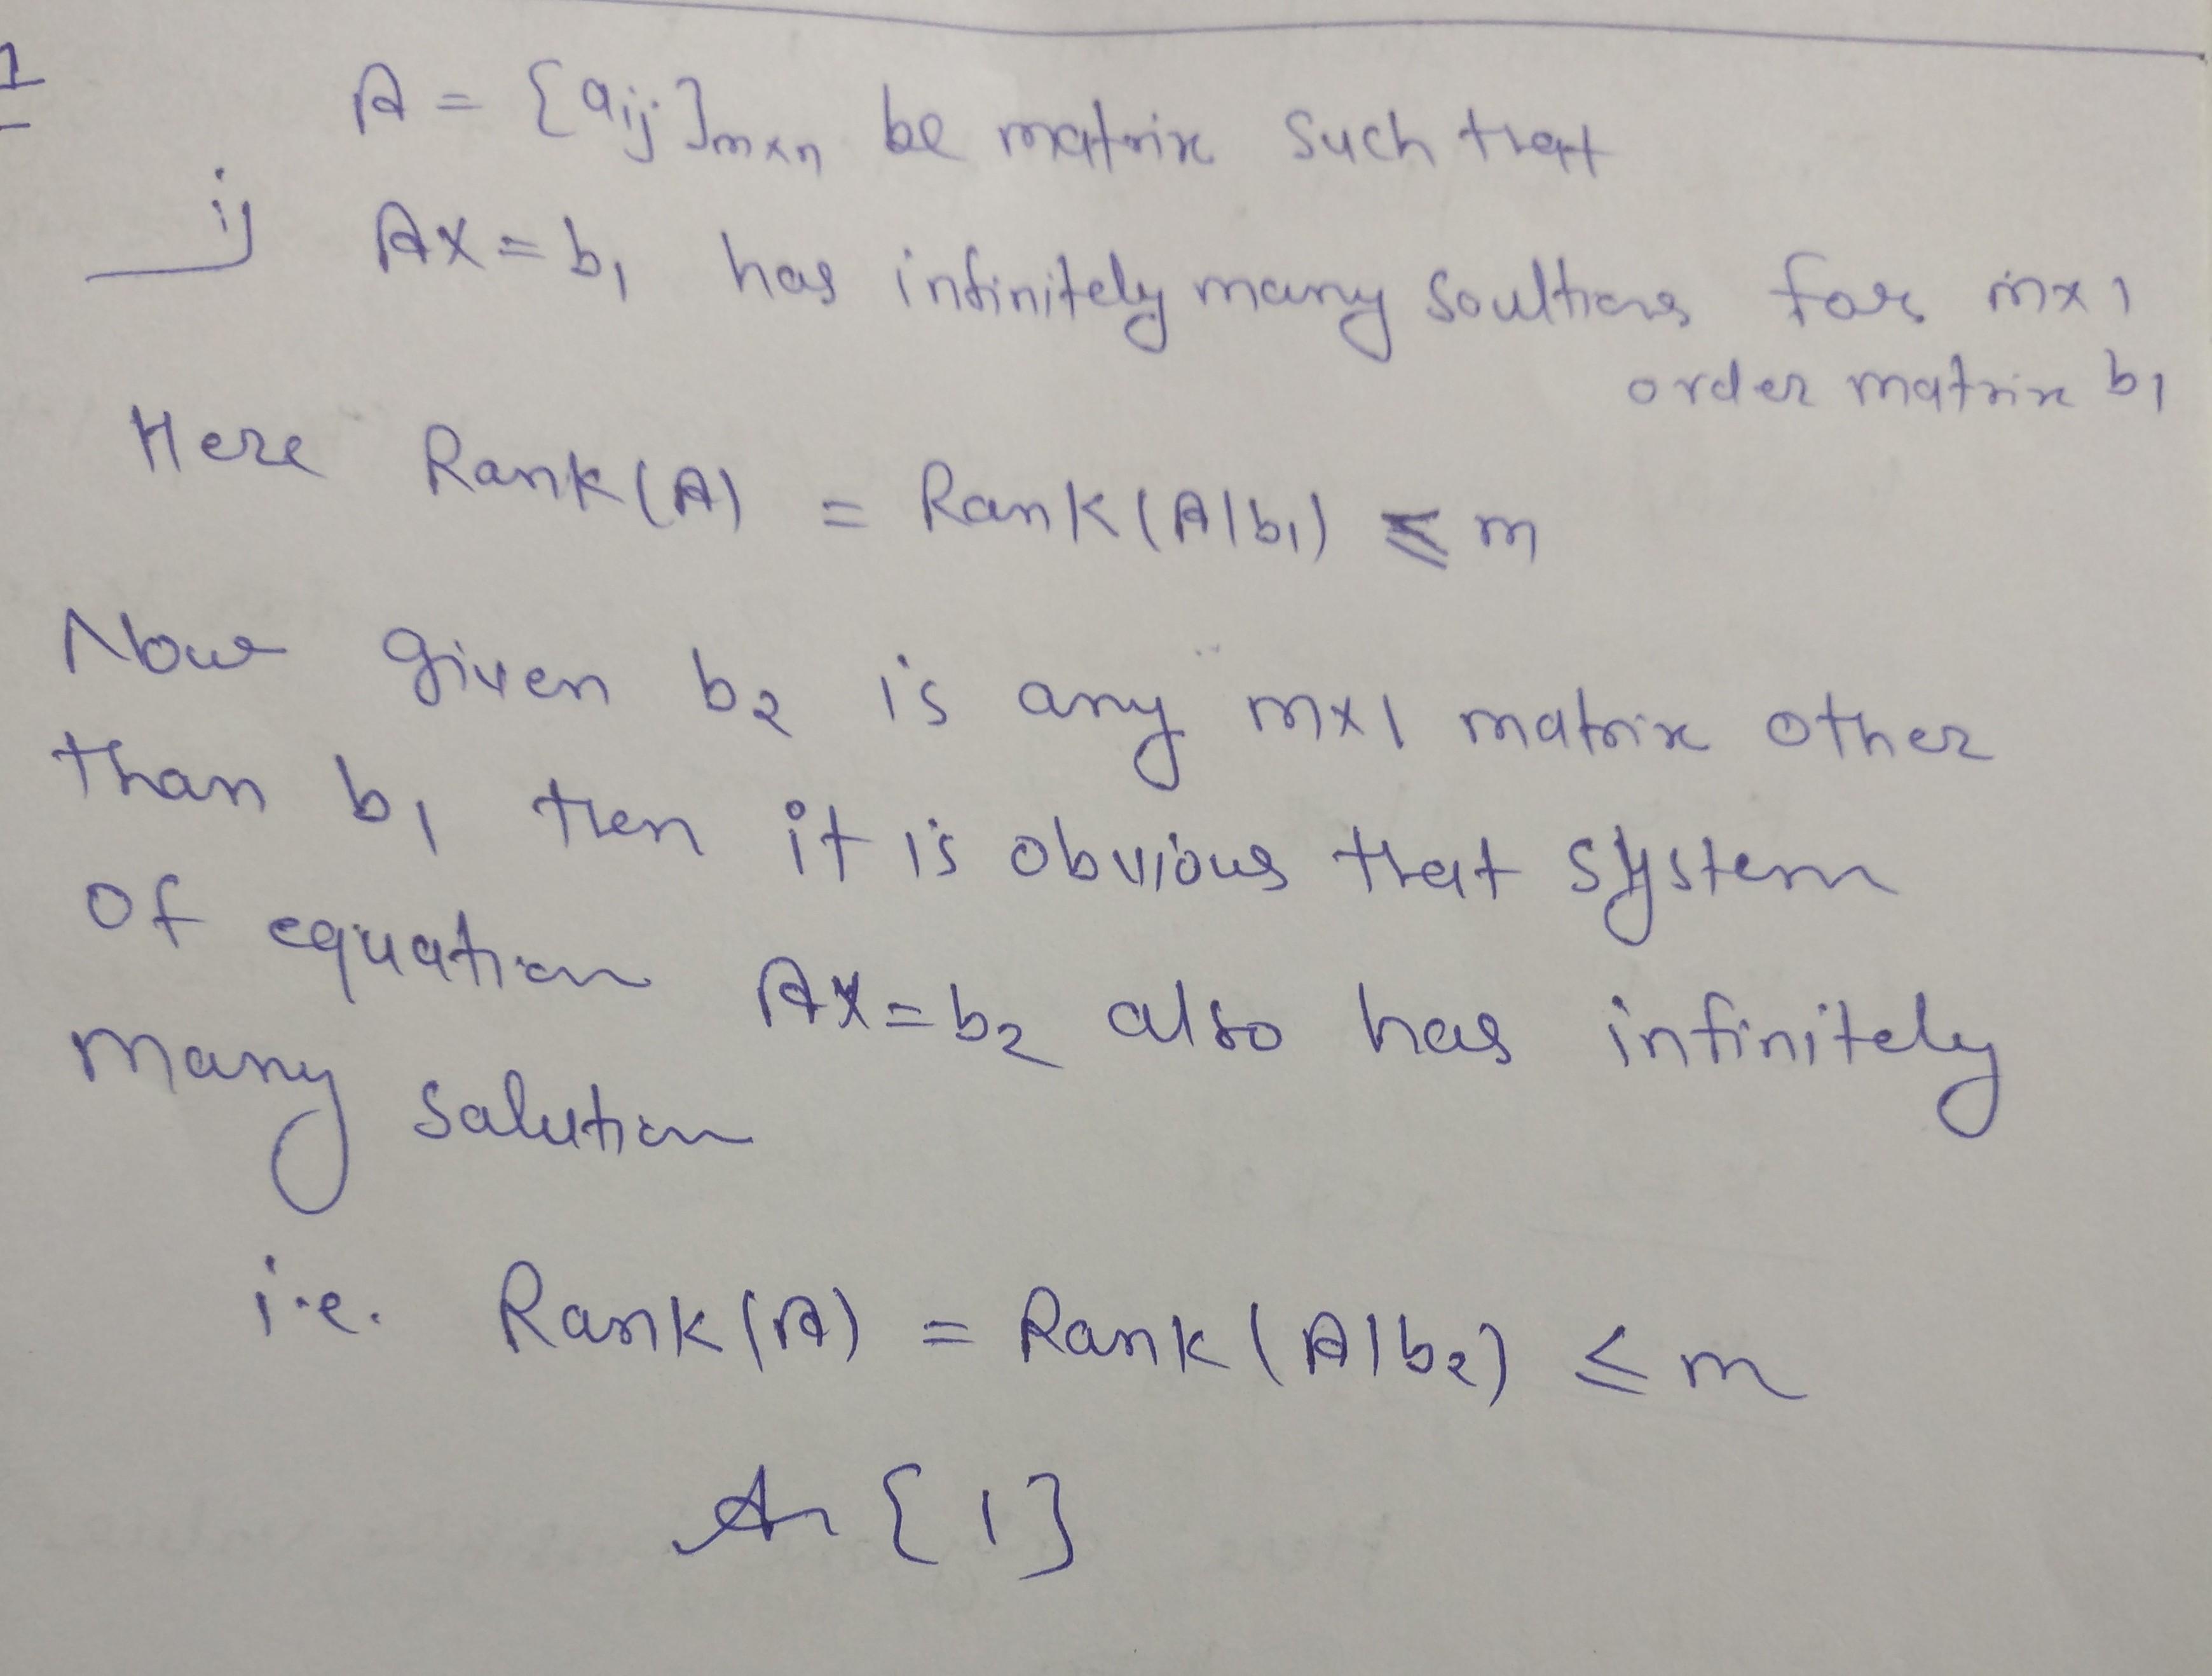 1
A = {aij}m×n be matrix such that
i) AX = b1 has infinitely many soultions for m×1
order matrix b1
Here Rank(A) = Rank(A|b1) ≤ m
Now given b2 is any m×1 matrix other
than b1 then it is obvious that system
of equation AX = b2 also has infinitely
many solution
i.e. Rank(A) = Rank(A|b2) ≤ m
{1}